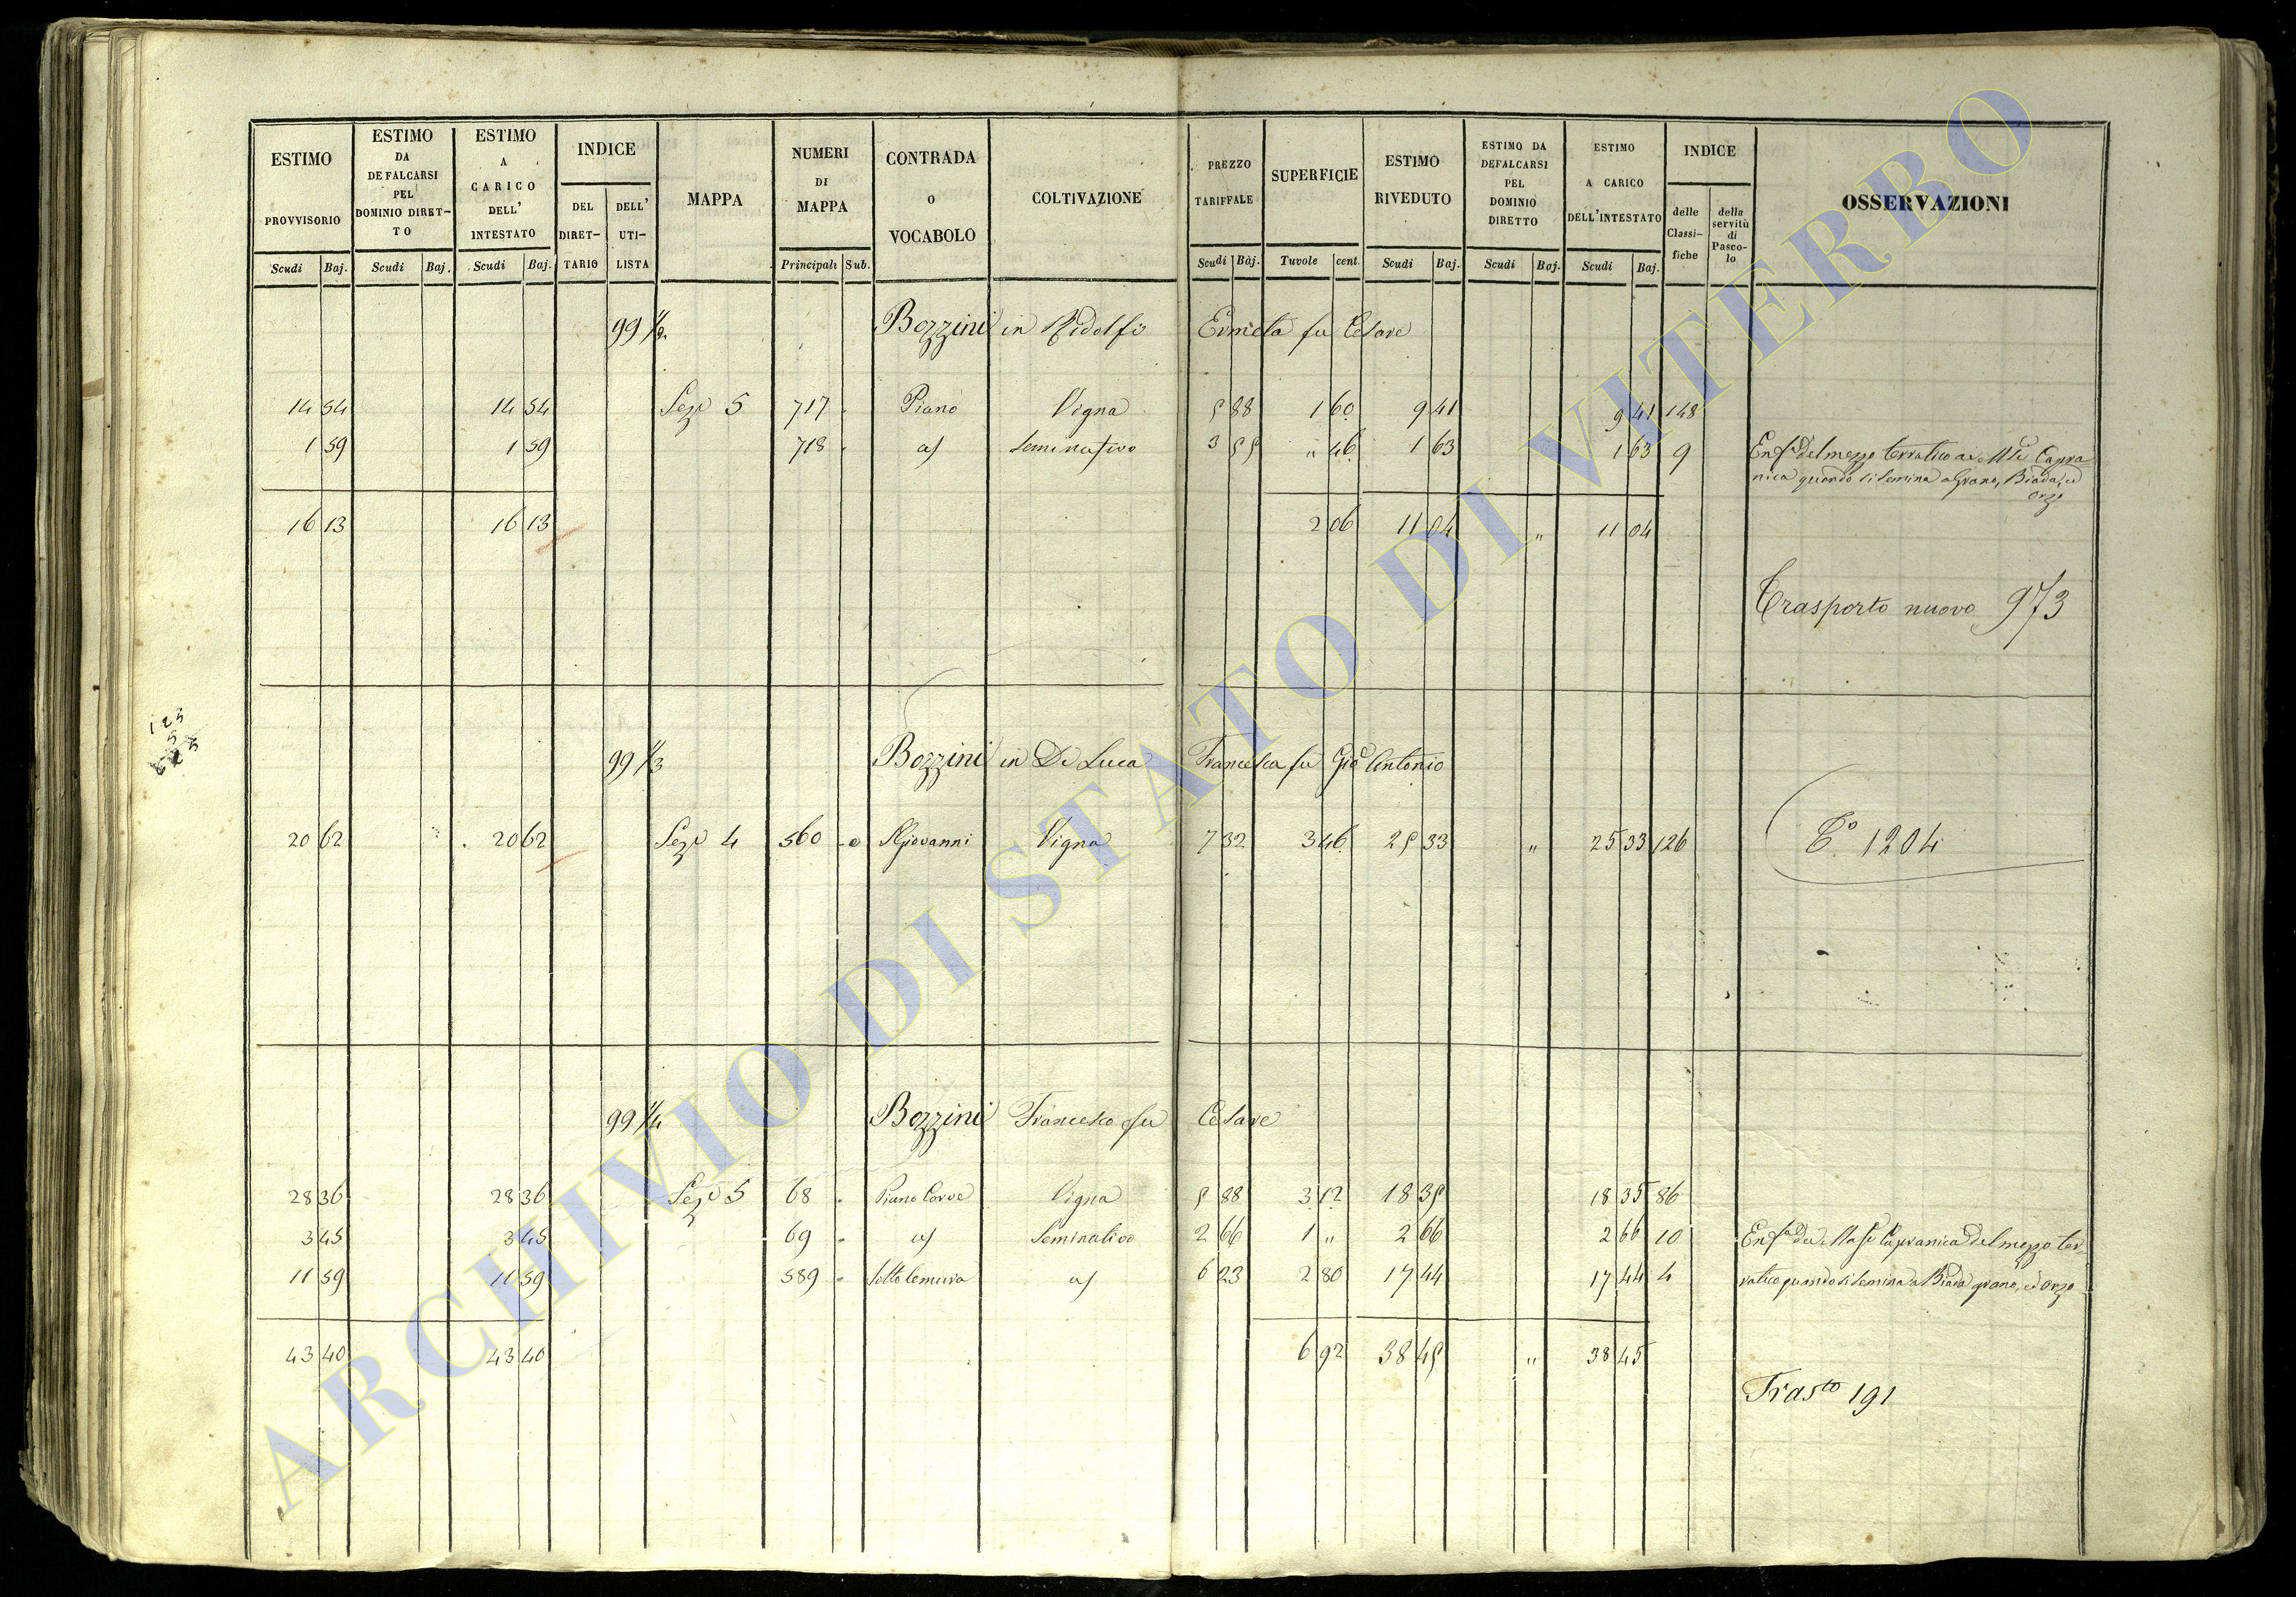 ESTIMO PROVVISORIO Scudi Baj. | ESTIMO DA DEFALCARSI PEL DOMINIO DIRETTO Scudi Baj. | ESTIMO A CARICO DELL' INTESTATO Scudi Baj. | INDICE DEL DIRETTARIO DELL' UTILISTA | MAPPA | NUMERI DI MAPPA Principali Sub. | CONTRADA o VOCABOLO | COLTIVAZIONE | PREZZO TARIFFALE Scudi Baj. | SUPERFICIE Tuvole cent. | ESTIMO RIVEDUTO Scudi Baj. | ESTIMO DA DEFALCARSI PEL DOMINIO DIRETTO Scudi Baj. | ESTIMO A CARICO DELL'INTESTATO Scudi Baj. | INDICE delle Classifiche della servitù di Pascolo | OSSERVAZIONI
99 1/2 Bozzini in Ridolfi Ermeta fu Cesare
14 54 14 54 Seze 5 717 Piano Vigna 5 88 1 60 9 41 9 41 148
1 59 1 59 718 " as Seminativo 3 55 " 46 1 63 1 63 9 Enfa del mezzo terratico a Mse Capra
nica quando si semina a Grano, Biada, ed
Orzo
16 13 16 13 2 06 11 04 " 11 04
Trasporto nuovo 973
123
99 1/3 Bozzini in De Luca Francesca fu Gio Antonio
20 62 20 62 Seze 4 560 S Giovanni Vigna 7 32 3 46 25 33 " 25 33 126 To 1204
99 1/4 Bozzini Francesco fu Cesare
28 36 28 36 Seze 5 68 Piano Corve Vigna 5 88 3 12 18 35 18 35 86
3 45 3 45 69 as Seminativo 2 66 1 " 2 66 2 66 10 Enfa del Mase Capranica del mezzo ter
11 59 11 59 589 Sotto le mura as 6 23 2 80 17 44 17 44 4 ratico quando si semina a Biada grano, ed orzo
43 40 43 40 6 92 38 45 " 38 45
Trasto 191
ARCHIVIO DI STATO DI VITERBO